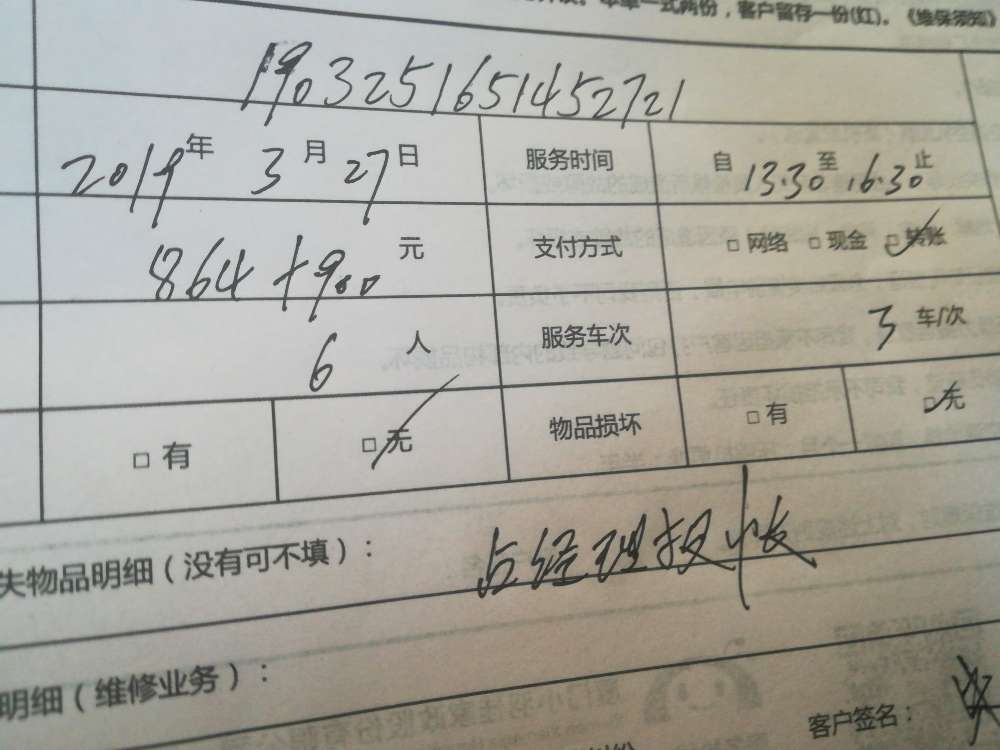 本单一式两份，客户留存一份(红)。《维保须知》
1903251651452721
2019年 3月 27日 服务时间 自 13.30 至 16.30 止
864+900 元 支付方式 □ 网络 □ 现金 □ 转账
6 人 服务车次 3 车/次
□ 有 □ 无 物品损坏 □ 有 □ 无
失物品明细（没有可不填）： 占经理报帐
明细（维修业务）：
客户签名：